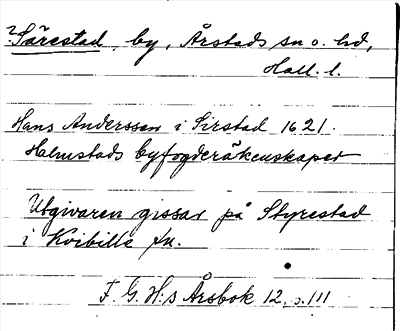 ? Sårestad, by, Årstads sn o. hd,
Hall. l.
Hans Andersson i Sirstad 1621.
Halmstads byfogderäkenskaper
Utgivaren gissar på Styrestad
i Kvibille sn.
F. G. H:s Årsbok 12, s. 111